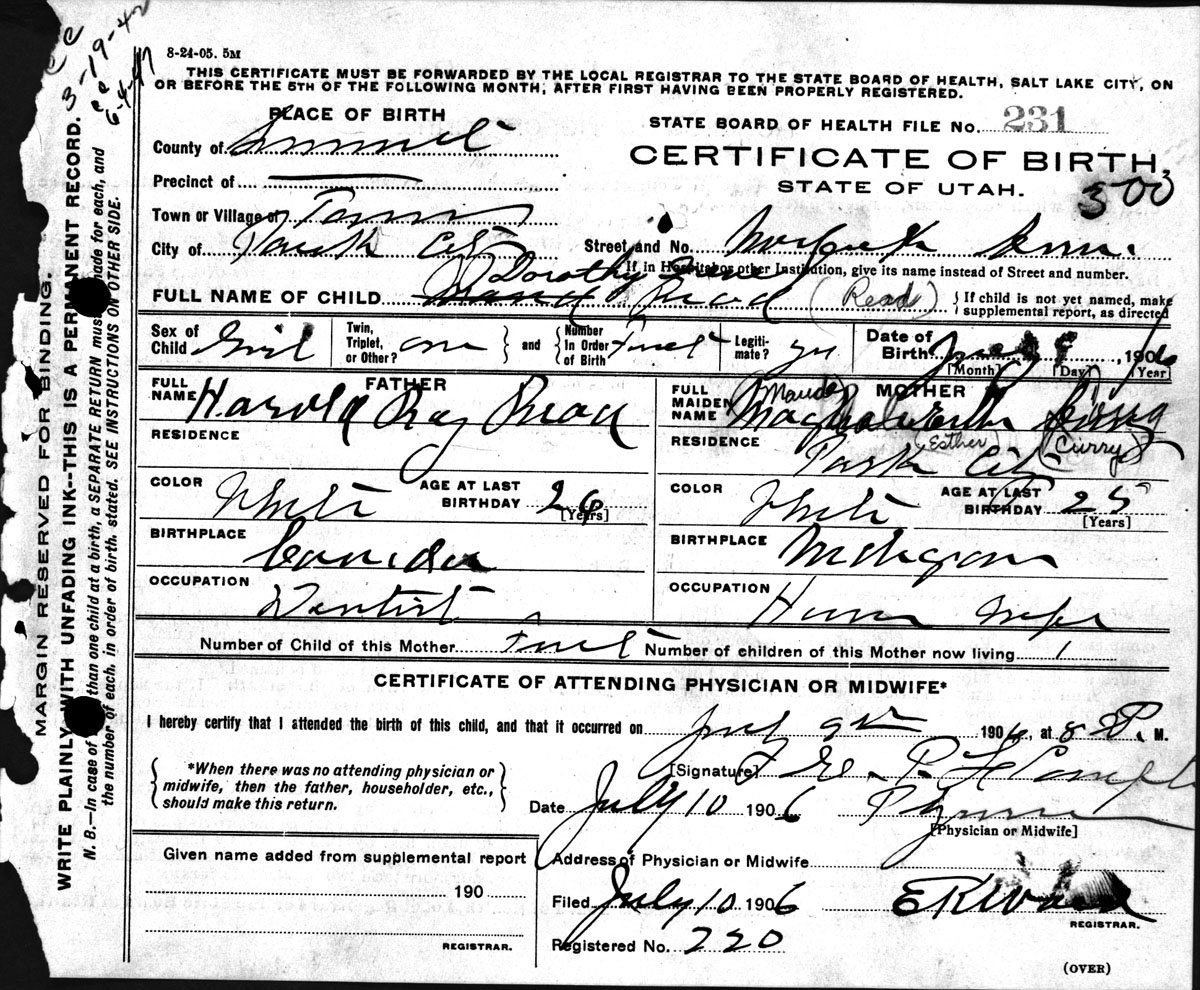 8-24-05. 5M
THIS CERTIFICATE MUST BE FORWARDED BY THE LOCAL REGISTRAR TO THE STATE BOARD OF HEALTH, SALT LAKE CITY, ON
OR BEFORE THE 5TH OF THE FOLLOWING MONTH, AFTER FIRST HAVING BEEN PROPERLY REGISTERED.
3-19-42
6-4-47
PLACE OF BIRTH
STATE BOARD OF HEALTH FILE No. 231
County of Summit
CERTIFICATE OF BIRTH,
Precinct of
STATE OF UTAH.
300
Town or Village of
City of Park City
Street and No.
If in Hospital or other Institution, give its name instead of Street and number.
Dorothy Irene
FULL NAME OF CHILD Read (Read)
{If child is not yet named, make
supplemental report, as directed
Sex of Child Girl
Twin, Triplet, or Other? one
} and {
Number In Order of Birth First
Legiti- mate? yes
Date of Birth , 1906
[Month] [Day] [Year]
FATHER
FULL NAME Harold Ray Read
RESIDENCE
COLOR White
AGE AT LAST BIRTHDAY 26
[Years]
BIRTHPLACE Canada
OCCUPATION Dentist
MOTHER
(Maude)
FULL MAIDEN NAME
(Esther) (Curry)
RESIDENCE Park City
COLOR White
AGE AT LAST BIRTHDAY 25
[Years]
BIRTHPLACE Michigan
OCCUPATION House Wife
Number of Child of this Mother First Number of children of this Mother now living 1
CERTIFICATE OF ATTENDING PHYSICIAN OR MIDWIFE*
I hereby certify that I attended the birth of this child, and that it occurred on July 9th 1906, at 8 P. M.
{*When there was no attending physician or
midwife, then the father, householder, etc.,
should make this return.}
[Signature]
Date July 10 1906
[Physician or Midwife]
Given name added from supplemental report
190
REGISTRAR.
Address of Physician or Midwife
Filed July 10 1906
REGISTRAR.
Registered No. 220
(OVER)
MARGIN RESERVED FOR BINDING.
WRITE PLAINLY WITH UNFADING INK--THIS IS A PERMANENT RECORD.
N. B.—In case of than one child at a birth, a SEPARATE RETURN must made for each, and
the number of each, in order of birth, stated. SEE INSTRUCTIONS ON OTHER SIDE.